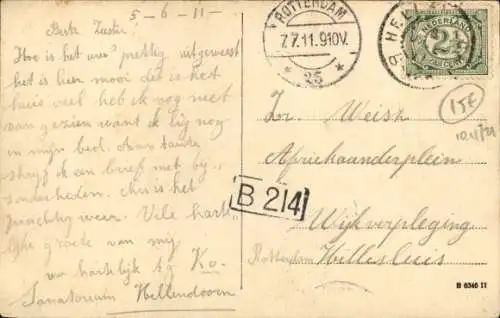 5-6-11-
Beste Zuster!
Hoe is het met prettig uitgeweest
het is hier mooi dat is het
huis veel heb ik nog niet
van gezien want ik lig nog
in mijn bed. Aan tante
schrijf ik een brief met bij-
zonderheden. hier is het
prachtig weer. Vele harte-
lijke groete van mij
Ko.
Sanatorium Hellendoorn
ROTTERDAM
7.7.11.9-10V.
25
NEDERLAND
2½
CENT
Zr. Weish
Afrikaanderplein
B 214
Wijkverpleging
Rotterdam Hillesluis
B 6346 11